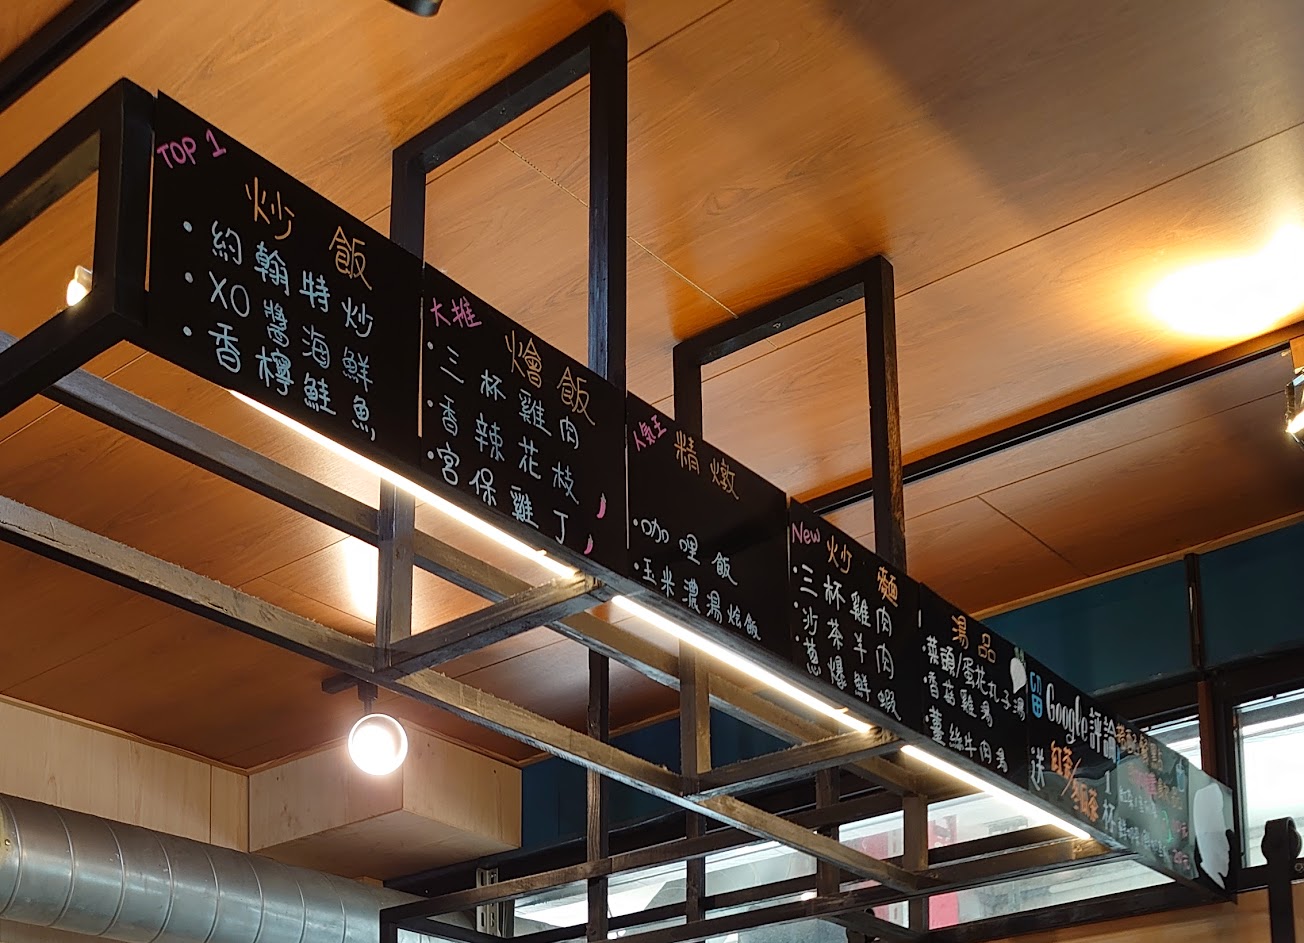 TOP 1
炒飯
·約翰特炒
·XO醬海鮮
·香檸鮭魚
大推
燴飯
·三杯雞肉
·香辣花枝
·宮保雞丁
人氣王
精燉
·咖哩飯
·玉米濃湯烩飯
New
炒麵
·三杯雞肉
·沙茶羊肉
·蔥爆鮮蝦
湯品
·菜頭/蛋花丸子湯
·香菇雞湯
·薑絲牛肉湯
Google評論
送紅茶/
1杯